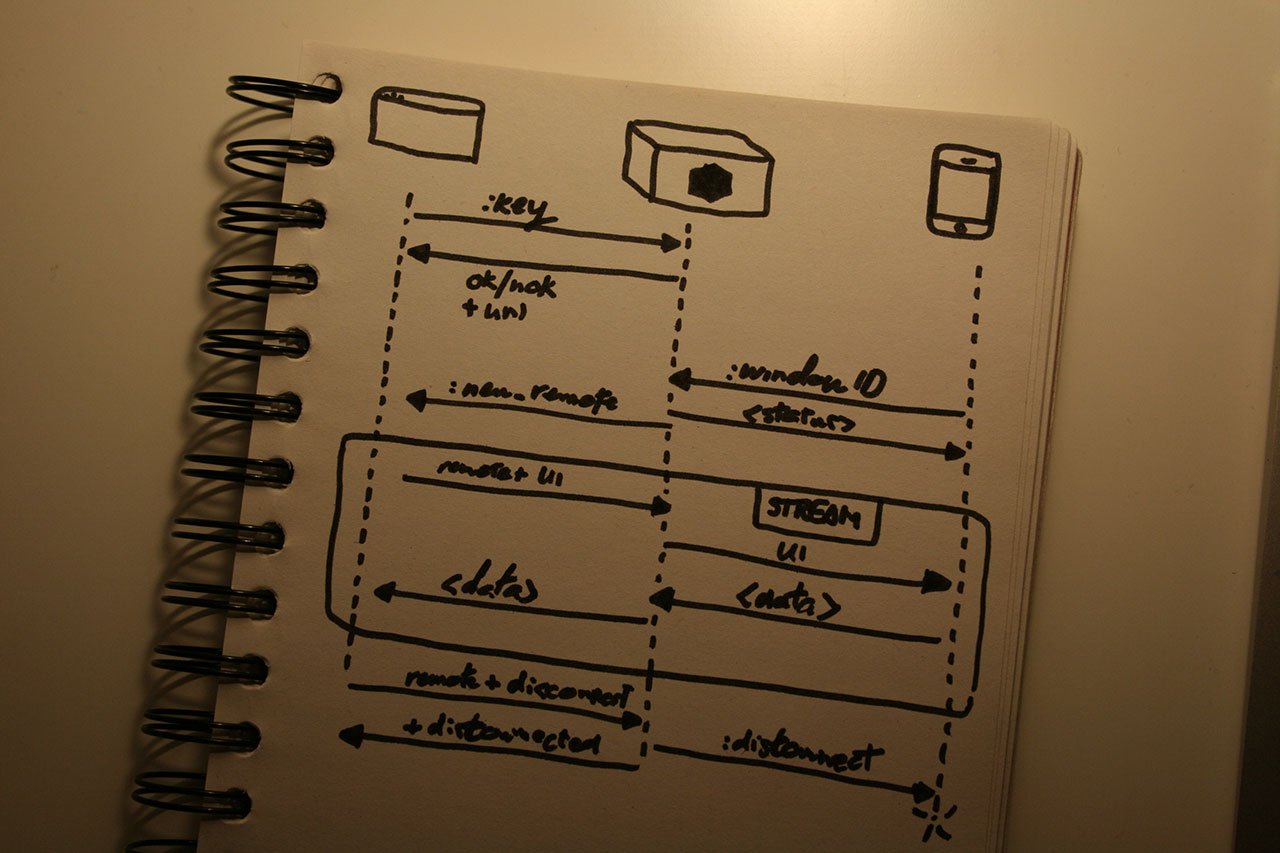 :key
ok/nok
+ url
:window ID
:new_remote
<status>
remote+ UI
STREAM
UI
<data>
<data>
remote + disconnect
+ disconnected
:disconnect